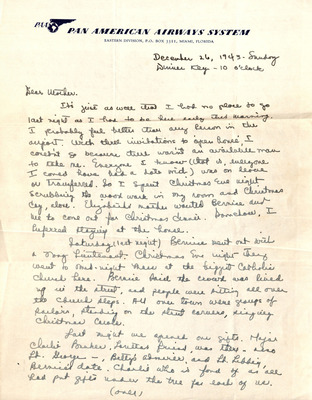 PAA
PAN AMERICAN AIRWAYS SYSTEM
EASTERN DIVISION, P.O. BOX 3311, MIAMI, FLORIDA
December 26, 1943 - Sunday
Dinner Key - 10 o'clock
Dear Mother.
It's just as well that I had no place to go
last night as I had to be here early this morning.
I probably feel better than any person in the
airport. With three invitations to open house I
couldn't go because there wasn't an available man
to take me. Everyone I know (that is, everyone
I could have had a date with) was on leave
or transferred. So I spent Christmas Eve night
scrubbing the wood work in my room and Christmas
Day, alone. Elizabeth's mother wanted Bernice and
me to come out for Christmas dinner. Somehow, I
preferred staying at the house.
Saturday (last night) Bernice went out with
a Navy Lieutenant. Christmas Eve night they
went to Midnight Mass at the Catholic
Church here. Bernice said the crowd was lined
up in the street, and people were sitting all over
the church steps. All over town were groups of
sailors, standing on the street corners, singing
Christmas Carols.
Last night we opened our gifts. Major
Charlie Bunker, friend, was there, also
Lt. George -, Betty's admirer, and Lt.
Bernice's date. Charlie who is fond of us all
had put gifts under the tree for each of us.
(over)